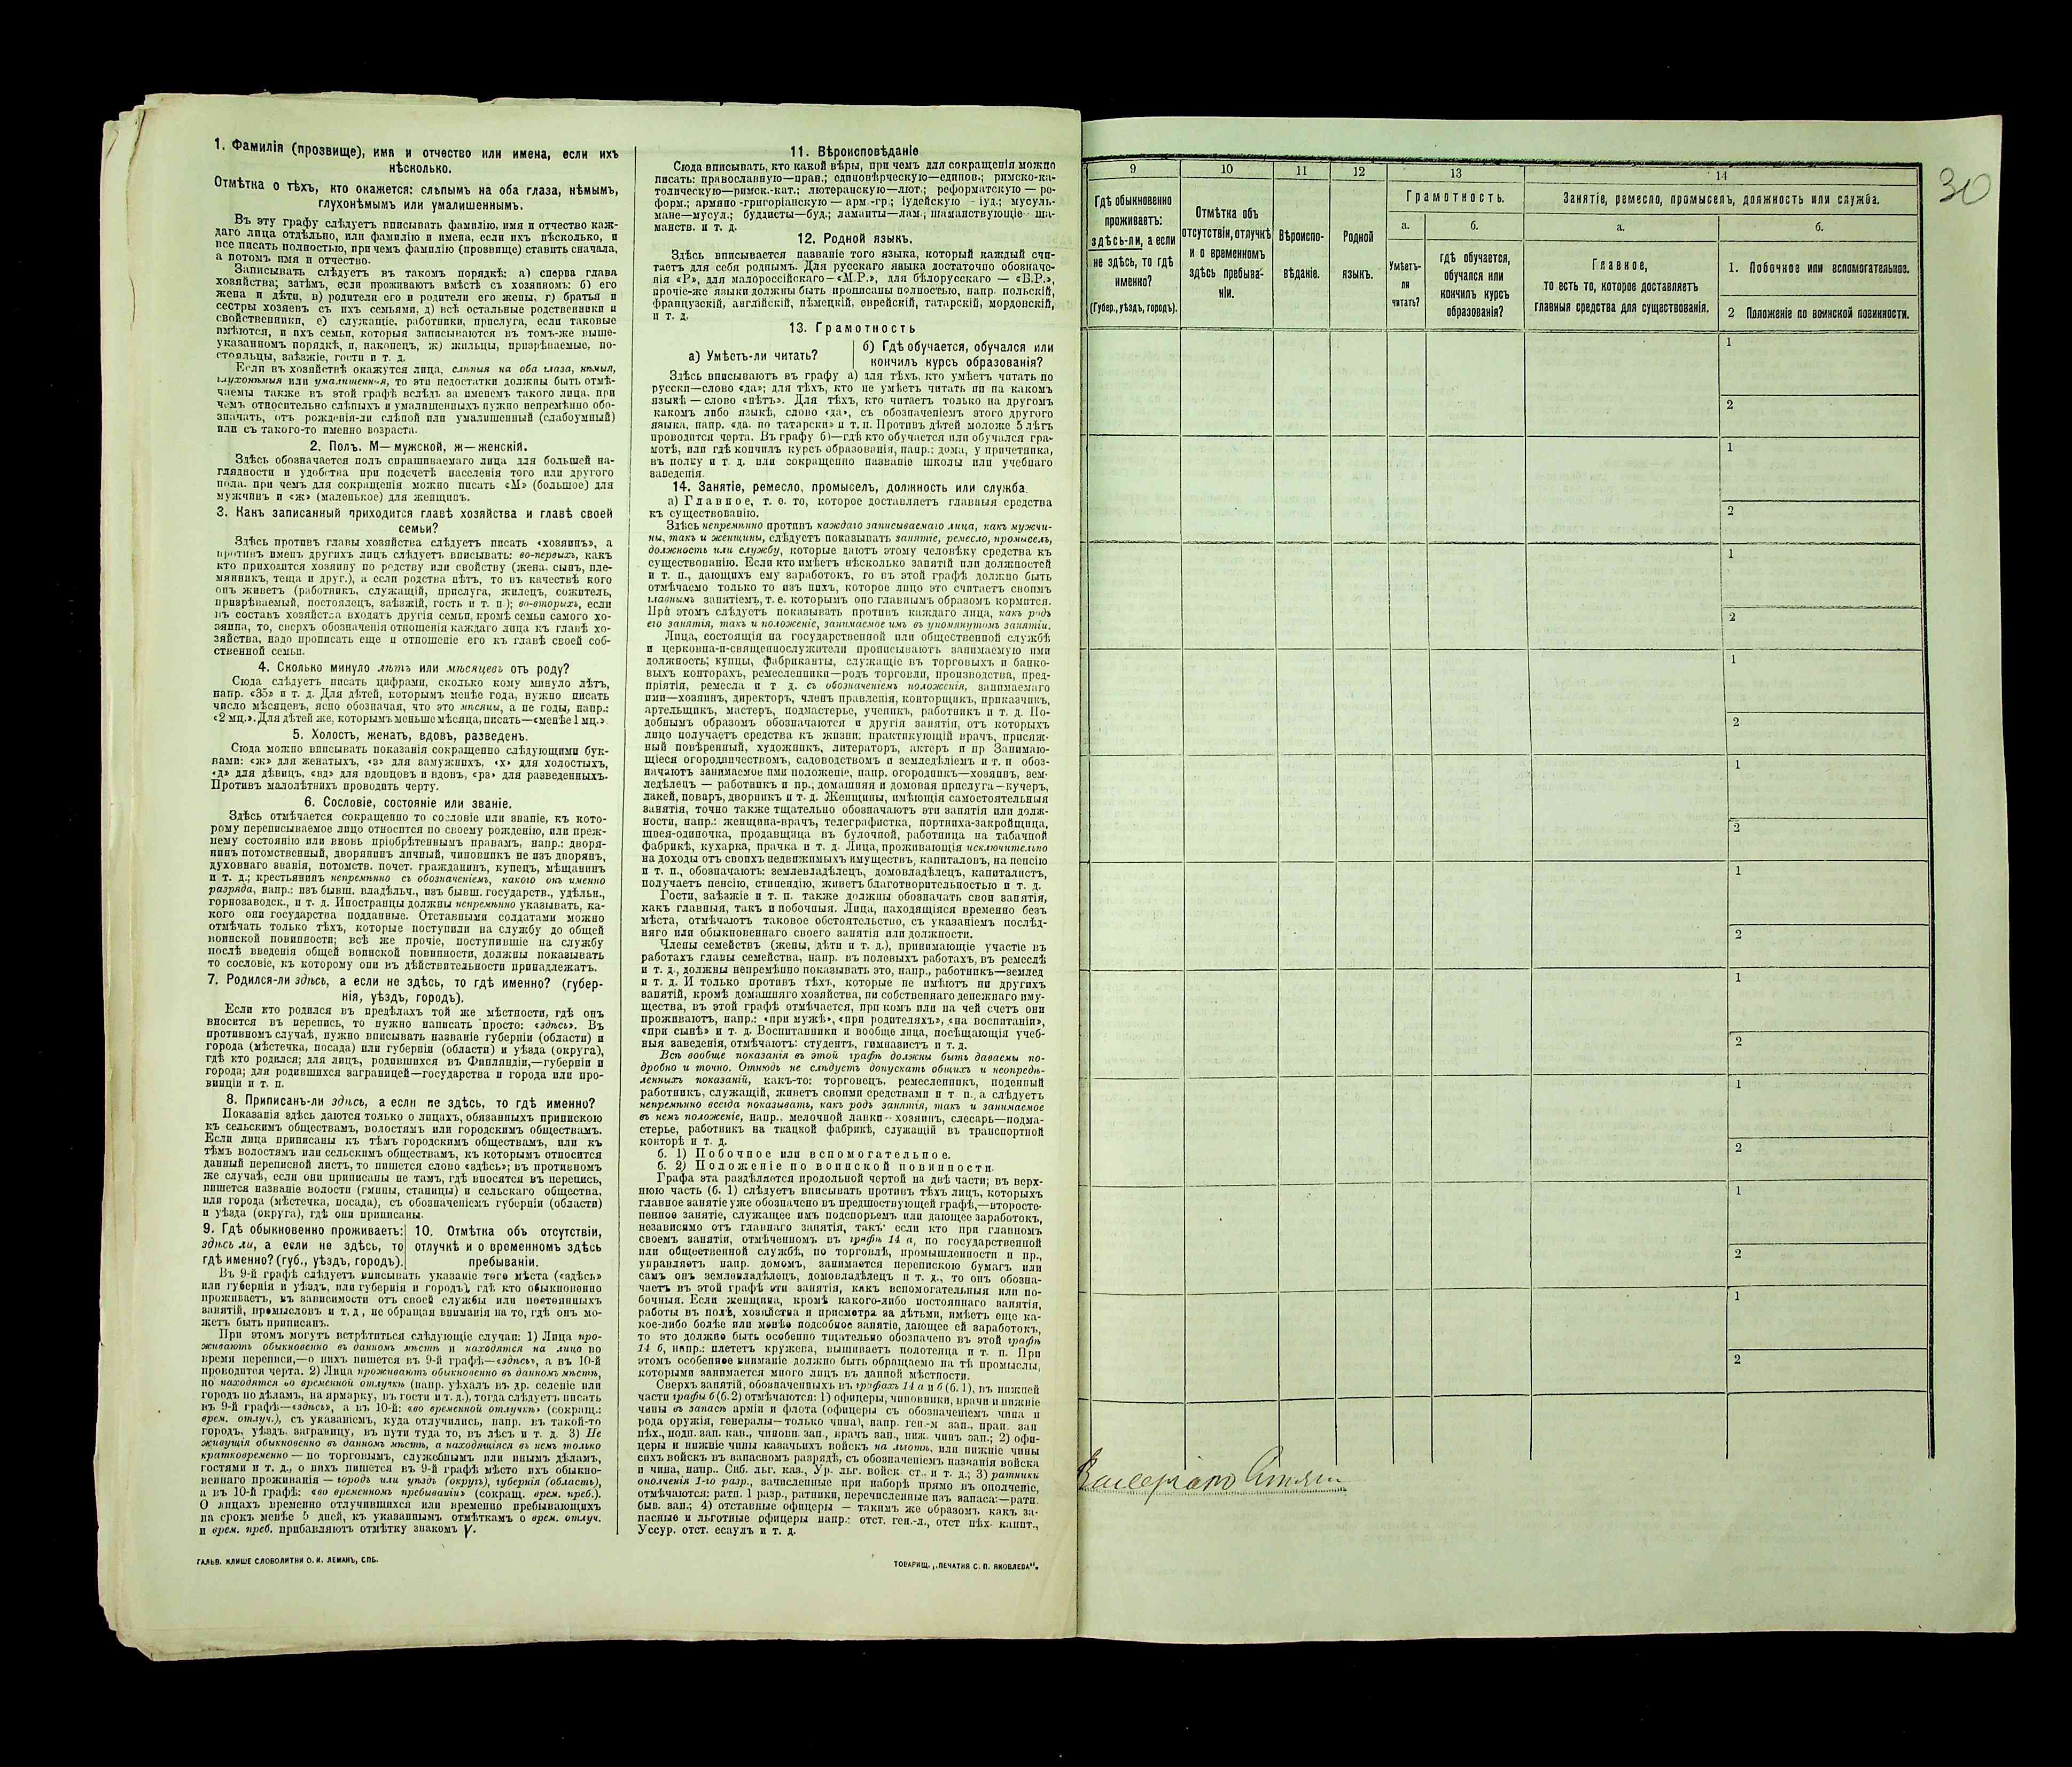 1. Фамилія (прозвище), имя и отчество или имена, если ихъ
нѣсколько.
Отмѣтка о тѣхъ, кто окажется: слѣпымъ на оба глаза, нѣмымъ,
глухонѣмымъ или умалишеннымъ.
Въ эту графу слѣдуетъ вписывать фамилію, имя и отчество каж-
даго лица отдѣльно, или фамилію и имена, если ихъ нѣсколько, и
все писать полностью, при чемъ фамилію (прозвище) ставить сначала,
а потомъ имя и отчество.
Записывать слѣдуетъ въ такомъ порядкѣ: а) сперва глава
хозяйства; затѣмъ, если проживаютъ вмѣстѣ съ хозяиномъ: б) его
жена и дѣти, в) родители его и родители его жены, г) братья и
сестры хозяевъ съ ихъ семьями, д) всѣ остальные родственники и
свойственники, е) служащіе, работники, прислуга, если таковые
имѣются, и ихъ семьи, которыя записываются въ томъ-же выше-
указанномъ порядкѣ, и, наконецъ, ж) жильцы, призрѣваемые, по-
стояльцы, заѣзжіе, гости и т. д.
Если въ хозяйствѣ окажутся лица, слѣпыя на оба глаза, нѣмыя,
глухонѣмыя или умалишенныя, то эти недостатки должны быть отмѣ-
чаемы также въ этой графѣ вслѣдъ за именемъ такого лица, при
чемъ относительно слѣпыхъ и умалишенныхъ нужно непремѣнно обо-
значать, отъ рожденія-ли слѣпой или умалишенный (слабоумный)
или съ такого-то именно возраста.
2. Полъ. М— мужской, ж—женскій.
Здѣсь обозначается полъ спрашиваемаго лица для большей на-
глядности и удобства при подсчетѣ населенія того или другого
пола, при чемъ для сокращенія можно писать «М» (большое) для
мужчинъ и «ж» (маленькое) для женщинъ.
3. Какъ записанный приходится главѣ хозяйства и главѣ своей
семьи?
Здѣсь противъ главы хозяйства слѣдуетъ писать «хозяинъ», а
противъ именъ другихъ лицъ слѣдуетъ вписывать: во-первыхъ, какъ
кто приходится хозяину по родству или свойству (жена, сынъ, пле-
мянникъ, теща и друг.), а если родства нѣтъ, то въ качествѣ кого
онъ живетъ (работникъ, служащій, прислуга, жилецъ, сожитель,
призрѣваемый, постоялецъ, заѣзжій, гость и т. п.); во-вторыхъ, если
въ составъ хозяйства входятъ другія семьи, кромѣ семьи самого хо-
зяина, то, сверхъ обозначенія отношенія каждаго лица къ главѣ хо-
зяйства, надо прописать еще и отношеніе его къ главѣ своей соб-
ственной семьи.
4. Сколько минуло лѣтъ или мѣсяцевъ отъ роду?
Сюда слѣдуетъ писать цифрами, сколько кому минуло лѣтъ,
напр. «35» и т. д. Для дѣтей, которымъ менѣе года, нужно писать
число мѣсяцевъ, ясно обозначая, что это мѣсяцы, а не годы, напр.:
«2 мц.». Для дѣтей же, которымъ меньше мѣсяца, писать—«менѣе 1 мц.».
5. Холостъ, женатъ, вдовъ, разведенъ.
Сюда можно вписывать показанія сокращенно слѣдующими бук-
вами: «ж» для женатыхъ, «з» для замужнихъ, «х» для холостыхъ,
«д» для дѣвицъ, «вд» для вдовцовъ и вдовъ, «рз» для разведенныхъ.
Противъ малолѣтнихъ проводить черту.
6. Сословіе, состояніе или званіе.
Здѣсь отмѣчается сокращенно то сословіе или званіе, къ кото-
рому переписываемое лицо относится по своему рожденію, или преж-
нему состоянію или вновь пріобрѣтеннымъ правамъ, напр.: дворя-
нинъ потомственный, дворянинъ личный, чиновникъ не изъ дворянъ,
духовнаго званія, потомств. почет. гражданинъ, купецъ, мѣщанинъ
и т. д.; крестьянинъ непремѣнно съ обозначеніемъ, какого онъ именно
разряда, напр.: изъ бывш. владѣльч., изъ бывш. государств., удѣльн.,
горнозаводск., и т. д. Иностранцы должны непремѣнно указывать, ка-
кого они государства подданные. Отставными солдатами можно
отмѣчать только тѣхъ, которые поступили на службу до общей
воинской повинности; всѣ же прочіе, поступившіе на службу
послѣ введенія общей воинской повинности, должны показывать
то сословіе, къ которому они въ дѣйствительности принадлежатъ.
7. Родился-ли здѣсь, а если не здѣсь, то гдѣ именно? (губер-
нія, уѣздъ, городъ).
Если кто родился въ предѣлахъ той же мѣстности, гдѣ онъ
вносится въ перепись, то нужно написать просто: «здѣсь». Въ
противномъ случаѣ, нужно вписывать названіе губерніи (области) и
города (мѣстечка, посада) или губерніи (области) и уѣзда (округа),
гдѣ кто родился; для лицъ, родившихся въ Финляндіи,—губерніи и
города; для родившихся заграницей—государства и города или про-
винціи и т. п.
8. Приписанъ-ли здѣсь, а если не здѣсь, то гдѣ именно?
Показанія здѣсь даются только о лицахъ, обязанныхъ припискою
къ сельскимъ обществамъ, волостямъ или городскимъ обществамъ.
Если лица приписаны къ тѣмъ городскимъ обществамъ, или къ
тѣмъ волостямъ или сельскимъ обществамъ, къ которымъ относится
данный переписной листъ, то пишется слово «здѣсь»; въ противномъ
же случаѣ, если они приписаны не тамъ, гдѣ вносятся въ перепись,
пишется названіе волости (гмины, станицы) и сельскаго общества,
или города (мѣстечка, посада), съ обозначеніемъ губерніи (области)
и уѣзда (округа), гдѣ они приписаны.
9. Гдѣ обыкновенно проживаетъ:
здѣсь ли, а если не здѣсь, то
гдѣ именно? (губ., уѣздъ, городъ).
10. Отмѣтка объ отсутствіи,
отлучкѣ и о временномъ здѣсь
пребываніи.
Въ 9-й графѣ слѣдуетъ вписывать указаніе того мѣста («здѣсь»
или губернія и уѣздъ, или губернія и городъ), гдѣ кто обыкновенно
проживаетъ, въ зависимости отъ своей службы или постоянныхъ
занятій, промысловъ и т. д., не обращая вниманія на то, гдѣ онъ мо-
жетъ быть приписанъ.
При этомъ могутъ встрѣтиться слѣдующіе случаи: 1) Лица про-
живаютъ обыкновенно въ данномъ мѣстѣ и находятся на лицо во
время переписи,—о нихъ пишется въ 9-й графѣ—«здѣсь», а въ 10-й
проводится черта. 2) Лица проживаютъ обыкновенно въ данномъ мѣстѣ,
но находятся во временной отлучкѣ (напр. уѣхалъ въ др. селеніе или
городъ по дѣламъ, на ярмарку, въ гости и т. д.), тогда слѣдуетъ писать
въ 9-й графѣ—«здѣсь», а въ 10-й: «во временной отлучкѣ» (сокращ.:
врем. отлуч.), съ указаніемъ, куда отлучились, напр. въ такой-то
городъ, уѣздъ, заграницу, въ пути туда то, въ лѣсъ и т. д. 3) Не
живущія обыкновенно въ данномъ мѣстѣ, а находящіяся въ немъ только
кратковременно — по торговымъ, служебнымъ или инымъ дѣламъ,
гостями и т. д., о нихъ пишется въ 9-й графѣ мѣсто ихъ обыкно-
веннаго проживанія — городъ или уѣздъ (округъ), губернія (область),
а въ 10-й графѣ: «во временномъ пребываніи» (сокращ. врем. преб.).
О лицахъ временно отлучившихся или временно пребывающихъ
на срокъ менѣе 5 дней, къ указаннымъ отмѣткамъ о врем. отлуч.
и врем. преб. прибавляютъ отмѣтку знакомъ V.
ГАЛЬВ. КЛИШЕ СЛОВОЛИТНИ О. И. ЛЕМАНЪ, СПБ.
11. Вѣроисповѣданіе
Сюда вписывать, кто какой вѣры, при чемъ для сокращенія можно
писать: православную—прав.; единовѣрческую—единов.; римско-ка-
толическую—римск.-кат.; лютеранскую—лют.; реформатскую — ре-
форм.; армяно-григоріанскую — арм.-гр.; іудейскую - іуд.; мусуль-
мане—мусул.; буддисты—буд.; ламаиты—лам.; шаманствующіе - ша-
манств. и т. д.
12. Родной языкъ.
Здѣсь вписывается названіе того языка, который каждый счи-
таетъ для себя роднымъ. Для русскаго языка достаточно обозначе-
нія «Р», для малороссійскаго—«М.Р.», для бѣлорусскаго — «Б.Р.»,
прочіе-же языки должны быть прописаны полностью, напр. польскій,
французскій, англійскій, нѣмецкій, еврейскій, татарскій, мордовскій,
и т. д.
13. Грамотность
а) Умѣетъ-ли читать?
б) Гдѣ обучается, обучался или
кончилъ курсъ образованія?
Здѣсь вписываютъ въ графу а) для тѣхъ, кто умѣетъ читать по
русски—слово «да»; для тѣхъ, кто не умѣетъ читать ни на какомъ
языкѣ — слово «нѣтъ». Для тѣхъ, кто читаетъ только на другомъ
какомъ либо языкѣ, слово «да», съ обозначеніемъ этого другого
языка, напр. «да, по татарски» и т. п. Противъ дѣтей моложе 5 лѣтъ
проводится черта. Въ графу б)—гдѣ кто обучается или обучался гра-
мотѣ, или гдѣ кончилъ курсъ образованія, напр.: дома, у причетника,
въ полку и т. д. или сокращенно названіе школы или учебнаго
заведенія.
14. Занятіе, ремесло, промыселъ, должность или служба.
а) Главное, т. е. то, которое доставляетъ главныя средства
къ существованію.
Здѣсь непремѣнно противъ каждаго записываемаго лица, какъ мужчи-
ны, такъ и женщины, слѣдуетъ показывать занятіе, ремесло, промыселъ,
должность или службу, которые даютъ этому человѣку средства къ
существованію. Если кто имѣетъ нѣсколько занятій или должностей
и т. п., дающихъ ему заработокъ, то въ этой графѣ должно быть
отмѣчаемо только то изъ нихъ, которое лицо это считаетъ своимъ
главнымъ занятіемъ, т. е. которымъ оно главнымъ образомъ кормится.
При этомъ слѣдуетъ показывать противъ каждаго лица, какъ родъ
его занятія, такъ и положеніе, занимаемое имъ въ упомянутомъ занятіи.
Лица, состоящія на государственной или общественной службѣ
и церковно-и-священнослужители прописываютъ занимаемую ими
должность; купцы, фабриканты, служащіе въ торговыхъ и банко-
выхъ конторахъ, ремесленники—родъ торговли, производства, пред-
пріятія, ремесла и т. д. съ обозначеніемъ положенія, занимаемаго
ими—хозяинъ, директоръ, членъ правленія, конторщикъ, приказчикъ,
артельщикъ, мастеръ, подмастерье, ученикъ, работникъ и т. д. По-
добнымъ образомъ обозначаются и другія занятія, отъ которыхъ
лицо получаетъ средства къ жизни: практикующій врачъ, присяж-
ный повѣренный, художникъ, литераторъ, актеръ и пр. Занимаю-
щіеся огородничествомъ, садоводствомъ и земледѣліемъ и т. п. обоз-
начаютъ занимаемое ими положеніе, напр. огородникъ—хозяинъ, зем-
ледѣлецъ — работникъ и пр.; домашняя и домовая прислуга—кучеръ,
лакей, поваръ, дворникъ и т. д. Женщины, имѣющія самостоятельныя
занятія, точно также тщательно обозначаютъ эти занятія или долж-
ности, напр.: женщина-врачъ, телеграфистка, портниха-закройщица,
швея-одиночка, продавщица въ булочной, работница на табачной
фабрикѣ, кухарка, прачка и т. д. Лица, проживающія исключительно
на доходы отъ своихъ недвижимыхъ имуществъ, капиталовъ, на пенсію
и т. п., обозначаютъ: землевладѣлецъ, домовладѣлецъ, капиталистъ,
получаетъ пенсію, стипендію, живетъ благотворительностью и т. д.
Гости, заѣзжіе и т. п. также должны обозначать свои занятія,
какъ главныя, такъ и побочныя. Лица, находящіяся временно безъ
мѣста, отмѣчаютъ таковое обстоятельство, съ указаніемъ послѣд-
няго или обыкновеннаго своего занятія или должности.
Члены семействъ (жены, дѣти и т. д.), принимающіе участіе въ
работахъ главы семейства, напр. въ полевыхъ работахъ, въ ремеслѣ
и т. д., должны непремѣнно показывать это, напр., работникъ—землед
и т. д. И только противъ тѣхъ, которые не имѣютъ ни другихъ
занятій, кромѣ домашняго хозяйства, ни собственнаго денежнаго иму-
щества, въ этой графѣ отмѣчается, при комъ или на чей счетъ они
проживаютъ, напр.: «при мужѣ», «при родителяхъ», «на воспитаніи»,
«при сынѣ» и т. д. Воспитанники и вообще лица, посѣщающія учеб-
ныя заведенія, отмѣчаютъ: студентъ, гимназистъ и т. д.
Всѣ вообще показанія въ этой графѣ должны быть даваемы по-
дробно и точно. Отнюдь не слѣдуетъ допускать общихъ и неопредѣ-
ленныхъ показаній, какъ-то: торговецъ, ремесленникъ, поденный
работникъ, служащій, живетъ своими средствами и т. п., а слѣдуетъ
непремѣнно всегда показывать, какъ родъ занятія, такъ и занимаемое
въ немъ положеніе, напр., мелочной лавки - хозяинъ, слесарь—подма-
стерье, работникъ на ткацкой фабрикѣ, служащій въ транспортной
конторѣ и т. д.
б. 1) Побочное или вспомогательное.
б. 2) Положеніе по воинской повинности.
Графа эта раздѣляется продольной чертой на двѣ части; въ верх-
нюю часть (б. 1) слѣдуетъ вписывать противъ тѣхъ лицъ, которыхъ
главное занятіе уже обозначено въ предшествующей графѣ,—второсте-
пенное занятіе, служащее имъ подспорьемъ или дающее заработокъ,
независимо отъ главнаго занятія, такъ если кто при главномъ
своемъ занятіи, отмѣченномъ въ графѣ 14 а, по государственной
или общественной службѣ, по торговлѣ, промышленности и пр.,
управляетъ напр. домомъ, занимается перепискою бумагъ или
самъ онъ землевладѣлецъ, домовладѣлецъ и т. д., то онъ обозна-
чаетъ въ этой графѣ эти занятія, какъ вспомогательныя или по-
бочныя. Если женщина, кромѣ какого-либо постояннаго занятія,
работы въ полѣ, хозяйства и присмотра за дѣтьми, имѣетъ еще ка-
кое-либо болѣе или менѣе подсобное занятіе, дающее ей заработокъ,
то это должно быть особенно тщательно обозначено въ этой графѣ
14 б, напр.: плететъ кружева, вышиваетъ полотенца и т. п. При
этомъ особенное вниманіе должно быть обращаемо на тѣ промыслы,
которыми занимается много лицъ въ данной мѣстности.
Сверхъ занятій, обозначенныхъ въ графахъ 14 а и б (б. 1), въ нижней
части графы б (б. 2) отмѣчаются: 1) офицеры, чиновники, врачи и нижніе
чины въ запасѣ арміи и флота (офицеры съ обозначеніемъ чина и
рода оружія, генералы—только чина), напр. ген.-м зап., прап. зап
пѣх., подп. зап. кав., чиновн. зап., врачъ зап., ниж. чинъ зап.; 2) офи-
церы и нижніе чины казачьихъ войскъ на льготѣ, или нижніе чины
сихъ войскъ въ запасномъ разрядѣ, съ обозначеніемъ названія войска
и чина, напр.. Сиб. льг. каз., Ур. льг. войск. ст. и т. д.; 3) ратники
ополченія 1-го разр., зачисленные при наборѣ прямо въ ополченіе,
отмѣчаются: ратн. 1 разр., ратники, перечисленные изъ запаса:—ратн.
быв. зап.; 4) отставные офицеры — такимъ же образомъ какъ за-
пасные и льготные офицеры напр.: отст. ген.-л., отст. пѣх. капит.,
Уссур. отст. есаулъ и т. д.
ТОВАРИЩ. „ПЕЧАТНЯ С. П. ЯКОВЛЕВА".
30
9
10
11
12
13
14
Гдѣ обыкновенно
проживаетъ:
здѣсь-ли, а если
не здѣсь, то гдѣ
именно?
(Губер., уѣздъ, городъ).
Отмѣтка объ
отсутствіи, отлучкѣ
и о временномъ
здѣсь пребыва-
ніи.
Вѣроиспо-
вѣданіе.
Родной
языкъ.
Грамотность.
а.
Умѣетъ-
ли
читать?
б.
гдѣ обучается,
обучался или
кончилъ курсъ
образованія?
Занятіе, ремесло, промыселъ, должность или служба.
а.
Главное,
то есть то, которое доставляетъ
главныя средства для существованія.
б.
1. Побочное или вспомогательное.
2 Положеніе по воинской повинности.
1
2
1
2
1
2
1
2
1
2
1
2
1
2
1
2
1
2
1
2